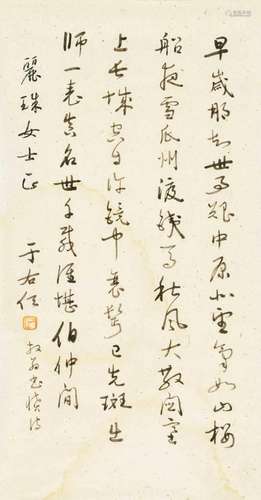 早歲那知世事艱中原北望氣如山樓
船夜雪瓜州渡鐵馬秋風大散關塞
上長城空自許鏡中衰鬢已先斑出
師一表真名世千載誰堪伯仲間
麗珠女士正
于右任
放翁書憤詩